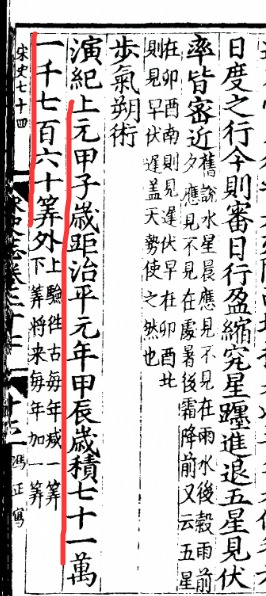 日度之行今則審日行盈縮究星躔進退五星見伏
率皆密近
舊說水星晨應見不見在雨水後穀雨前
夕應見不見在處暑後霜降前又云五星
在卯酉南則見遲伏早在卯酉北
則見早伏遲蓋天勢使之然也
步氣朔術
演紀上元甲子歲距治平元年甲辰歲積七十一萬
一千七百六十筭外
上驗往古每年減一筭
下筭將来每年加一筭
宋史七十四
馮正寫